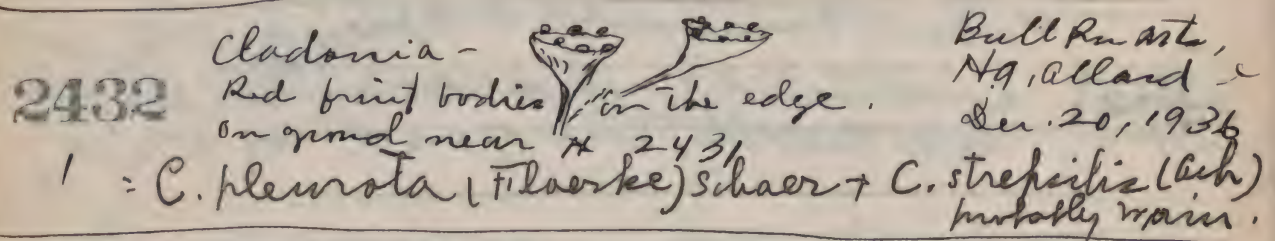 2432
Cladonia -
Red fruit bodies on the edge.
on ground near # 2431
Bull Run Mts,
H.A. Allard
Dec. 20, 1936
1 = C. pleurota (Floerke) Schaer + C. strepsilis (Ach)
probably Wain.